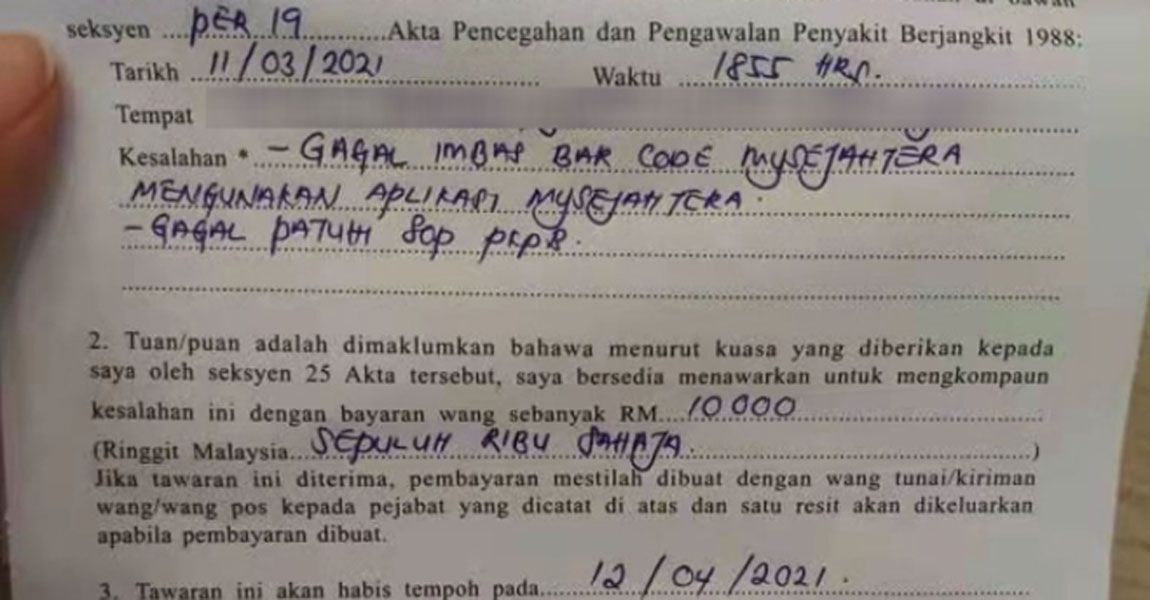 seksyen ....PER 19............Akta Pencegahan dan Pengawalan Penyakit Berjangkit 1988:
Tarikh ...11/03/2021................ Waktu ....1855 HRS.............
Tempat
Kesalahan * ..- GAGAL IMBAS BAR CODE MYSEJAHTERA
MENGUNAKAN APLIKASI MYSEJAHTERA.
- GAGAL PATUH SOP PKPB.
2. Tuan/puan adalah dimaklumkan bahawa menurut kuasa yang diberikan kepada
saya oleh seksyen 25 Akta tersebut, saya bersedia menawarkan untuk mengkompaun
kesalahan ini dengan bayaran wang sebanyak RM....10 000..............
(Ringgit Malaysia...SEPULUH RIBU SAHAJA.......................)
Jika tawaran ini diterima, pembayaran mestilah dibuat dengan wang tunai/kiriman
wang/wang pos kepada pejabat yang dicatat di atas dan satu resit akan dikeluarkan
apabila pembayaran dibuat.
3. Tawaran ini akan habis tempoh pada......12/04/2021.